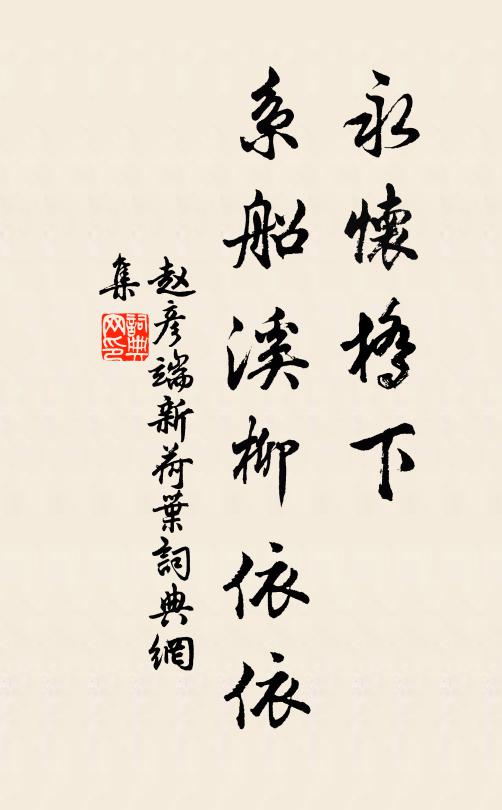 永懷橋下
系船溪柳依依
赵彥端新荷葉詞典網
集
詞典網印